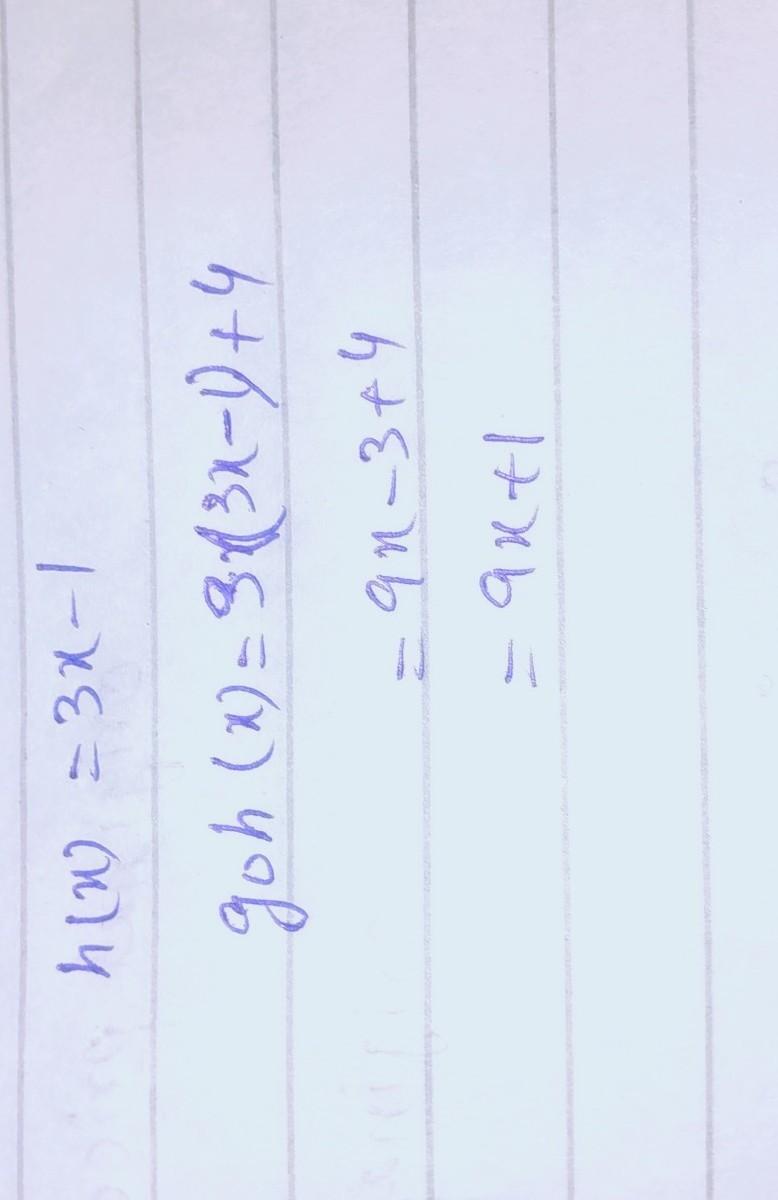 h(x) = 3x-1
goh (x) = 3(3x-1)+4
= 9x-3+4
= 9x+1